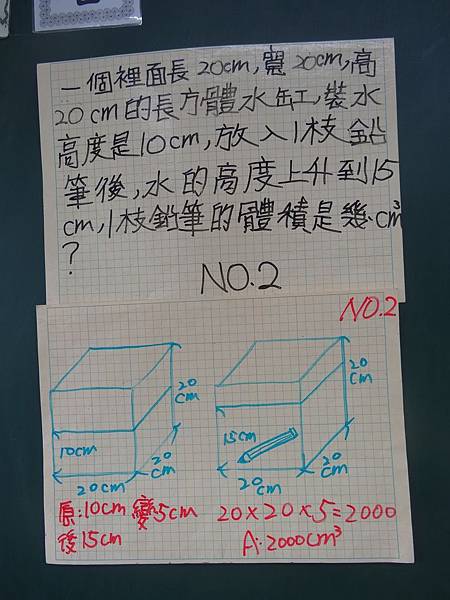 一個裡面長20cm,寬20cm,高
20cm的長方體水缸,裝水
高度是10cm,放入1枝鉛
筆後,水的高度上升到15
cm,1枝鉛筆的體積是幾cm³
?
NO.2
NO.2
20
cm
10cm
20
cm
20cm
20
cm
15cm
20
cm
20
cm
原:10cm 變5cm
後15cm
20×20×5=2000
A:2000cm³